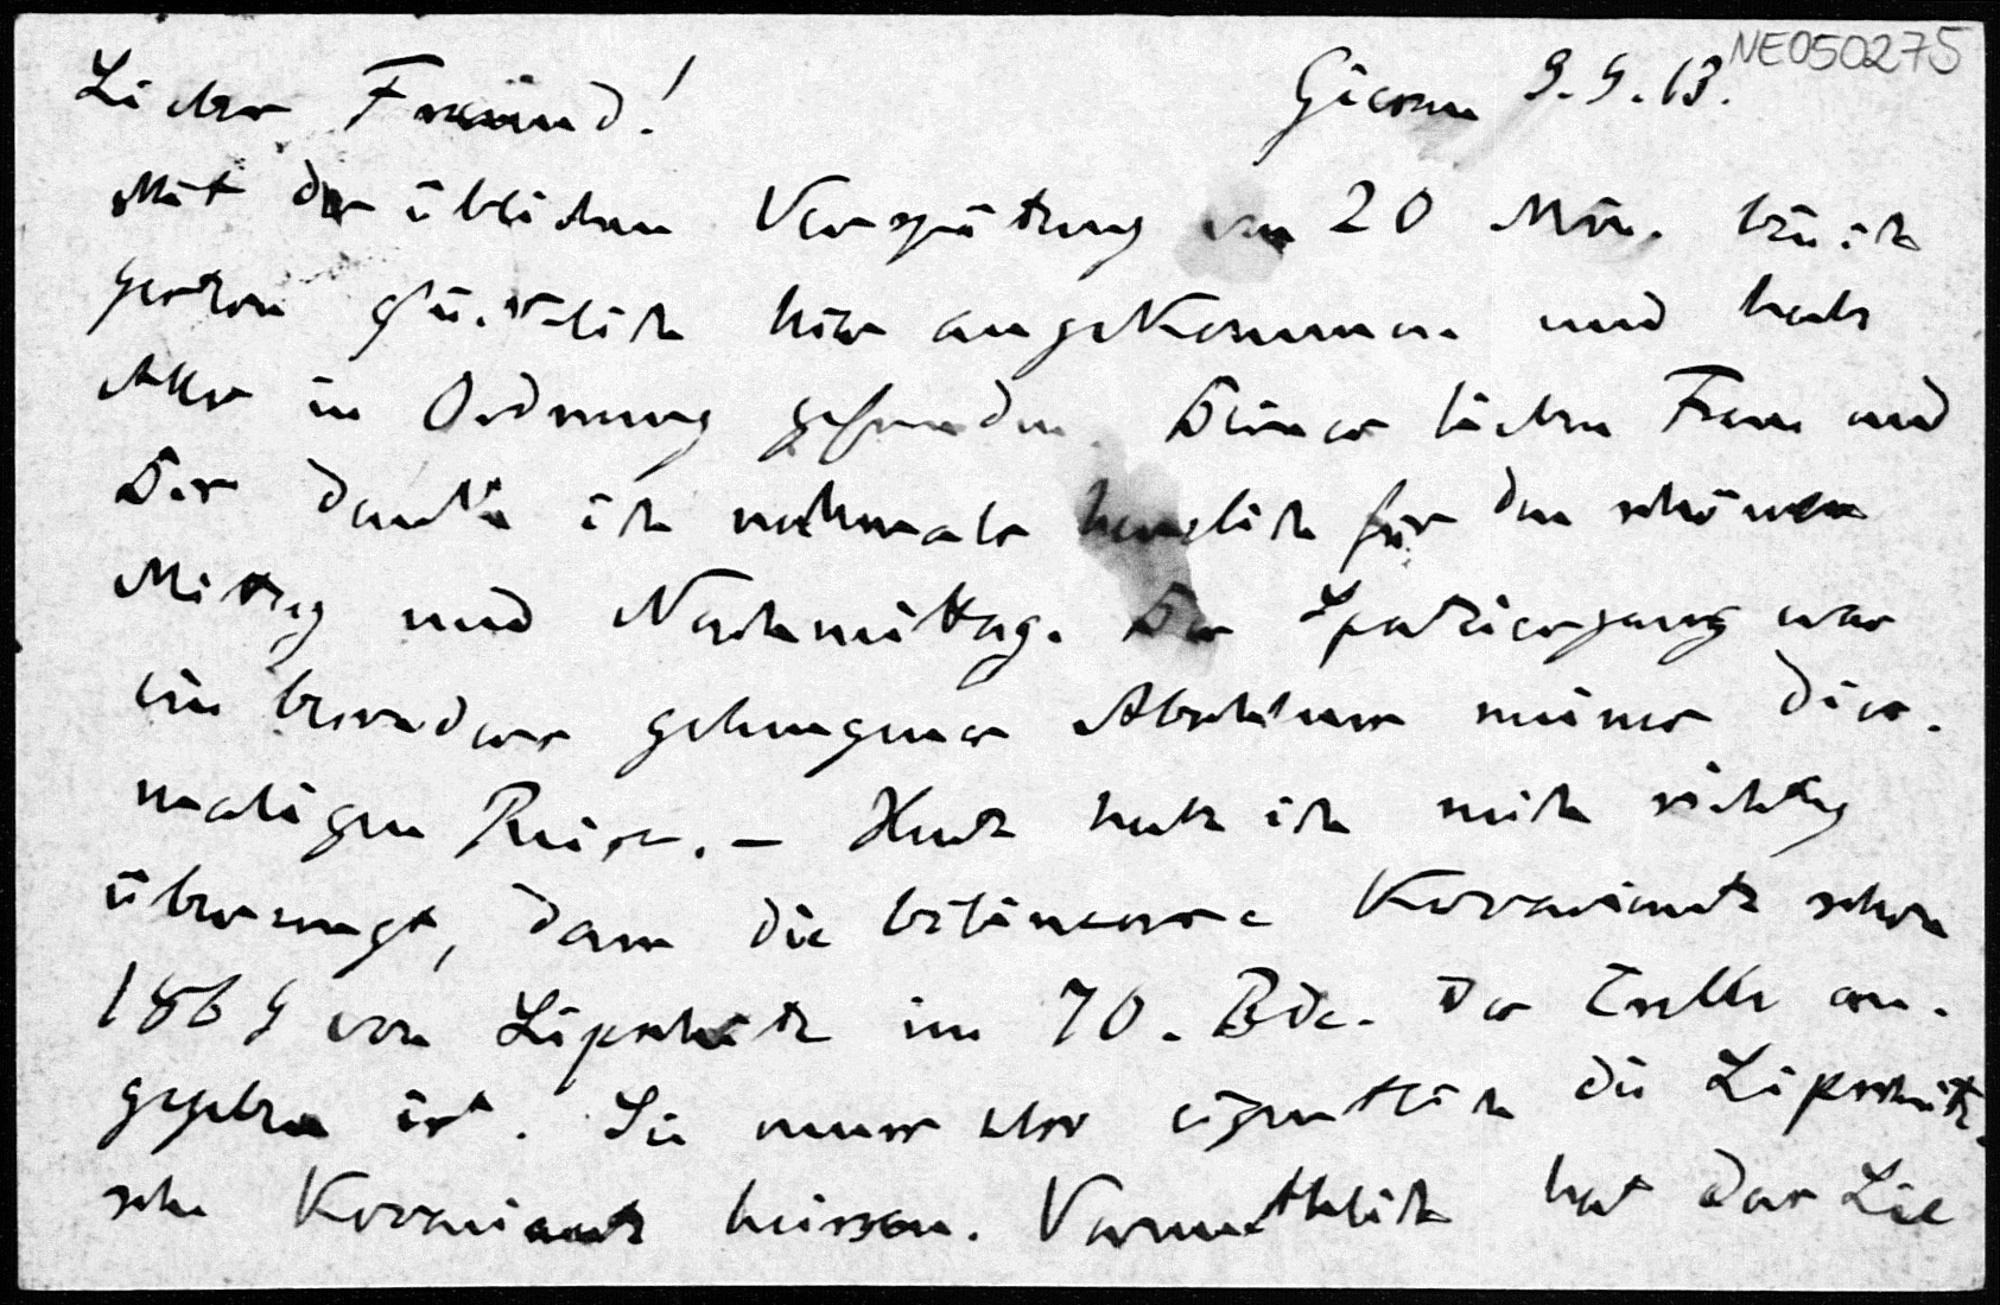 NE050275
Lieber Freund! Giessen 9.9.13.
Mit der üblichen Verspätung von 20 Min. bin ich
gestern glücklich hier angekommen und habe
Alles in Ordnung gefunden. Deiner lieben Frau und
Dir danke ich nochmals herzlich für den schönen
Mittag und Nachmittag. Der Spaziergang war
ein besonders gelungener Abschluss meiner dies-
maligen Reise. – Heute habe ich mich richtig
überzeugt, dass die bilineare Kovariante schon
1869 von Lipschitz im 70. Bde. des Crelle an-
gegeben ist. Sie muss also eigentlich die Lipschitz-
sche Kovariante heissen. Vermuthlich hat das Lie